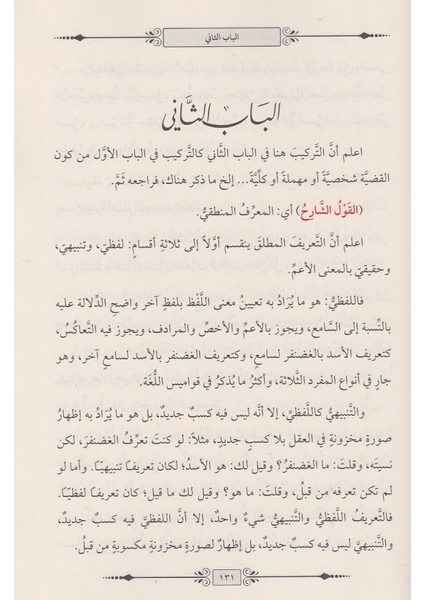 الباب الثاني
البَابُ الثَّاني
اعلم أنَّ التَّركيبَ هنا في الباب الثَّاني كالتَّركيب في الباب الأوَّل من كون
القضيَّة شخصيَّةً أو مهملةً أو كلِّيَّةً... إلخ ما ذكر هناك، فراجعه ثَمَّ.
(القَوْلُ الشَّارِحُ) أي: المعرِّف المنطقيُّ.
اعلم أنَّ التَّعريفَ المطلقَ ينقسم أوَّلاً إلى ثلاثةِ أقسامٍ: لفظيٍّ، وتنبيهيٍّ،
وحقيقيٍّ بالمعنى الأعمِّ.
فاللفظيُّ: هو ما يُرَادُ به تعيينُ معنى اللَّفْظِ بلفظٍ آخر واضحِ الدِّلالة عليه
بالنِّسبة إلى السَّامع، ويجوز بالأعمِّ والأخصِّ والمرادف، ويجوز فيه التَّعاكُس،
كتعريف الأسد بالغضنفر لسامعٍ، وكتعريف الغضنفر بالأسد لسامعٍ آخر، وهو
جارٍ في أنواع المفرد الثَّلاثة، وأكثرُ ما يُذكرُ في قواميس اللُّغَة.
والتَّنبيهيُّ كاللَّفظيِّ، إلا أنَّه ليس فيه كسبٌ جديدٌ، بل هو ما يُرَادُ به إظهارُ
صورةٍ مخزونةٍ في العقل بلا كسبٍ جديدٍ، مثلاً: لو كنتَ تعرِّفُ الغضنفرَ، لكن
نسيتَه، وقلتَ: ما الغضنفرُ؟ وقيل لك: هو الأسدُ؛ لكان تعريفاً تنبيهيًّا. وأما لو
لم تكن تعرفه من قبلُ، وقلتَ: ما هو؟ وقيل لك ما قيل؛ كان تعريفاً لفظيًّا.
فالتَّعريفُ اللَّفظيُّ والتَّنبيهيُّ شيءٌ واحدٌ، إلا أنَّ اللفظيَّ فيه كسبٌ جديدٌ،
والتَّنبيهيَّ ليس فيه كسبٌ جديدٌ، بل إظهارٌ لصورةٍ مخزونةٍ مكسوبةٍ من قبلُ.
١٣١